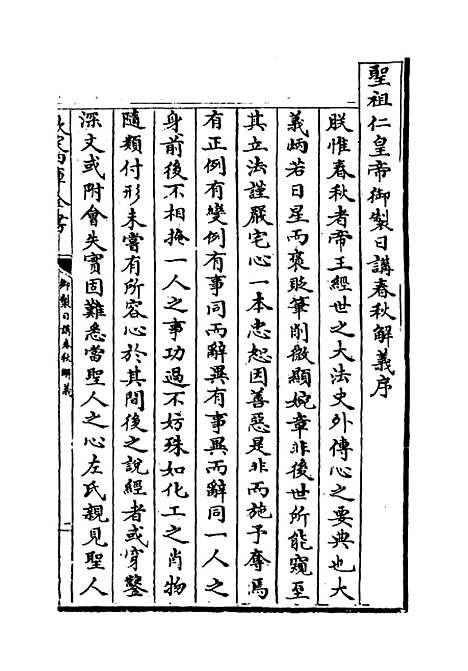 聖祖仁皇帝御製日講春秋解義序
朕惟春秋者帝王經世之大法史外傳心之要典也大
義炳若日星而褒貶筆削微顯婉章非後世所能窺至
其立法謹嚴宅心一本忠恕因善惡是非而施予奪焉
有正例有變例有事同而辭異有事異而辭同一人之
身前後不相掩一人之事功過不妨殊如化工之肖物
隨類付形未嘗有所容心於其間後之說經者或穿鑿
深文或附會失實固難悉當聖人之心左氏親見聖人
欽定四庫全書
御製日講春秋解義
二